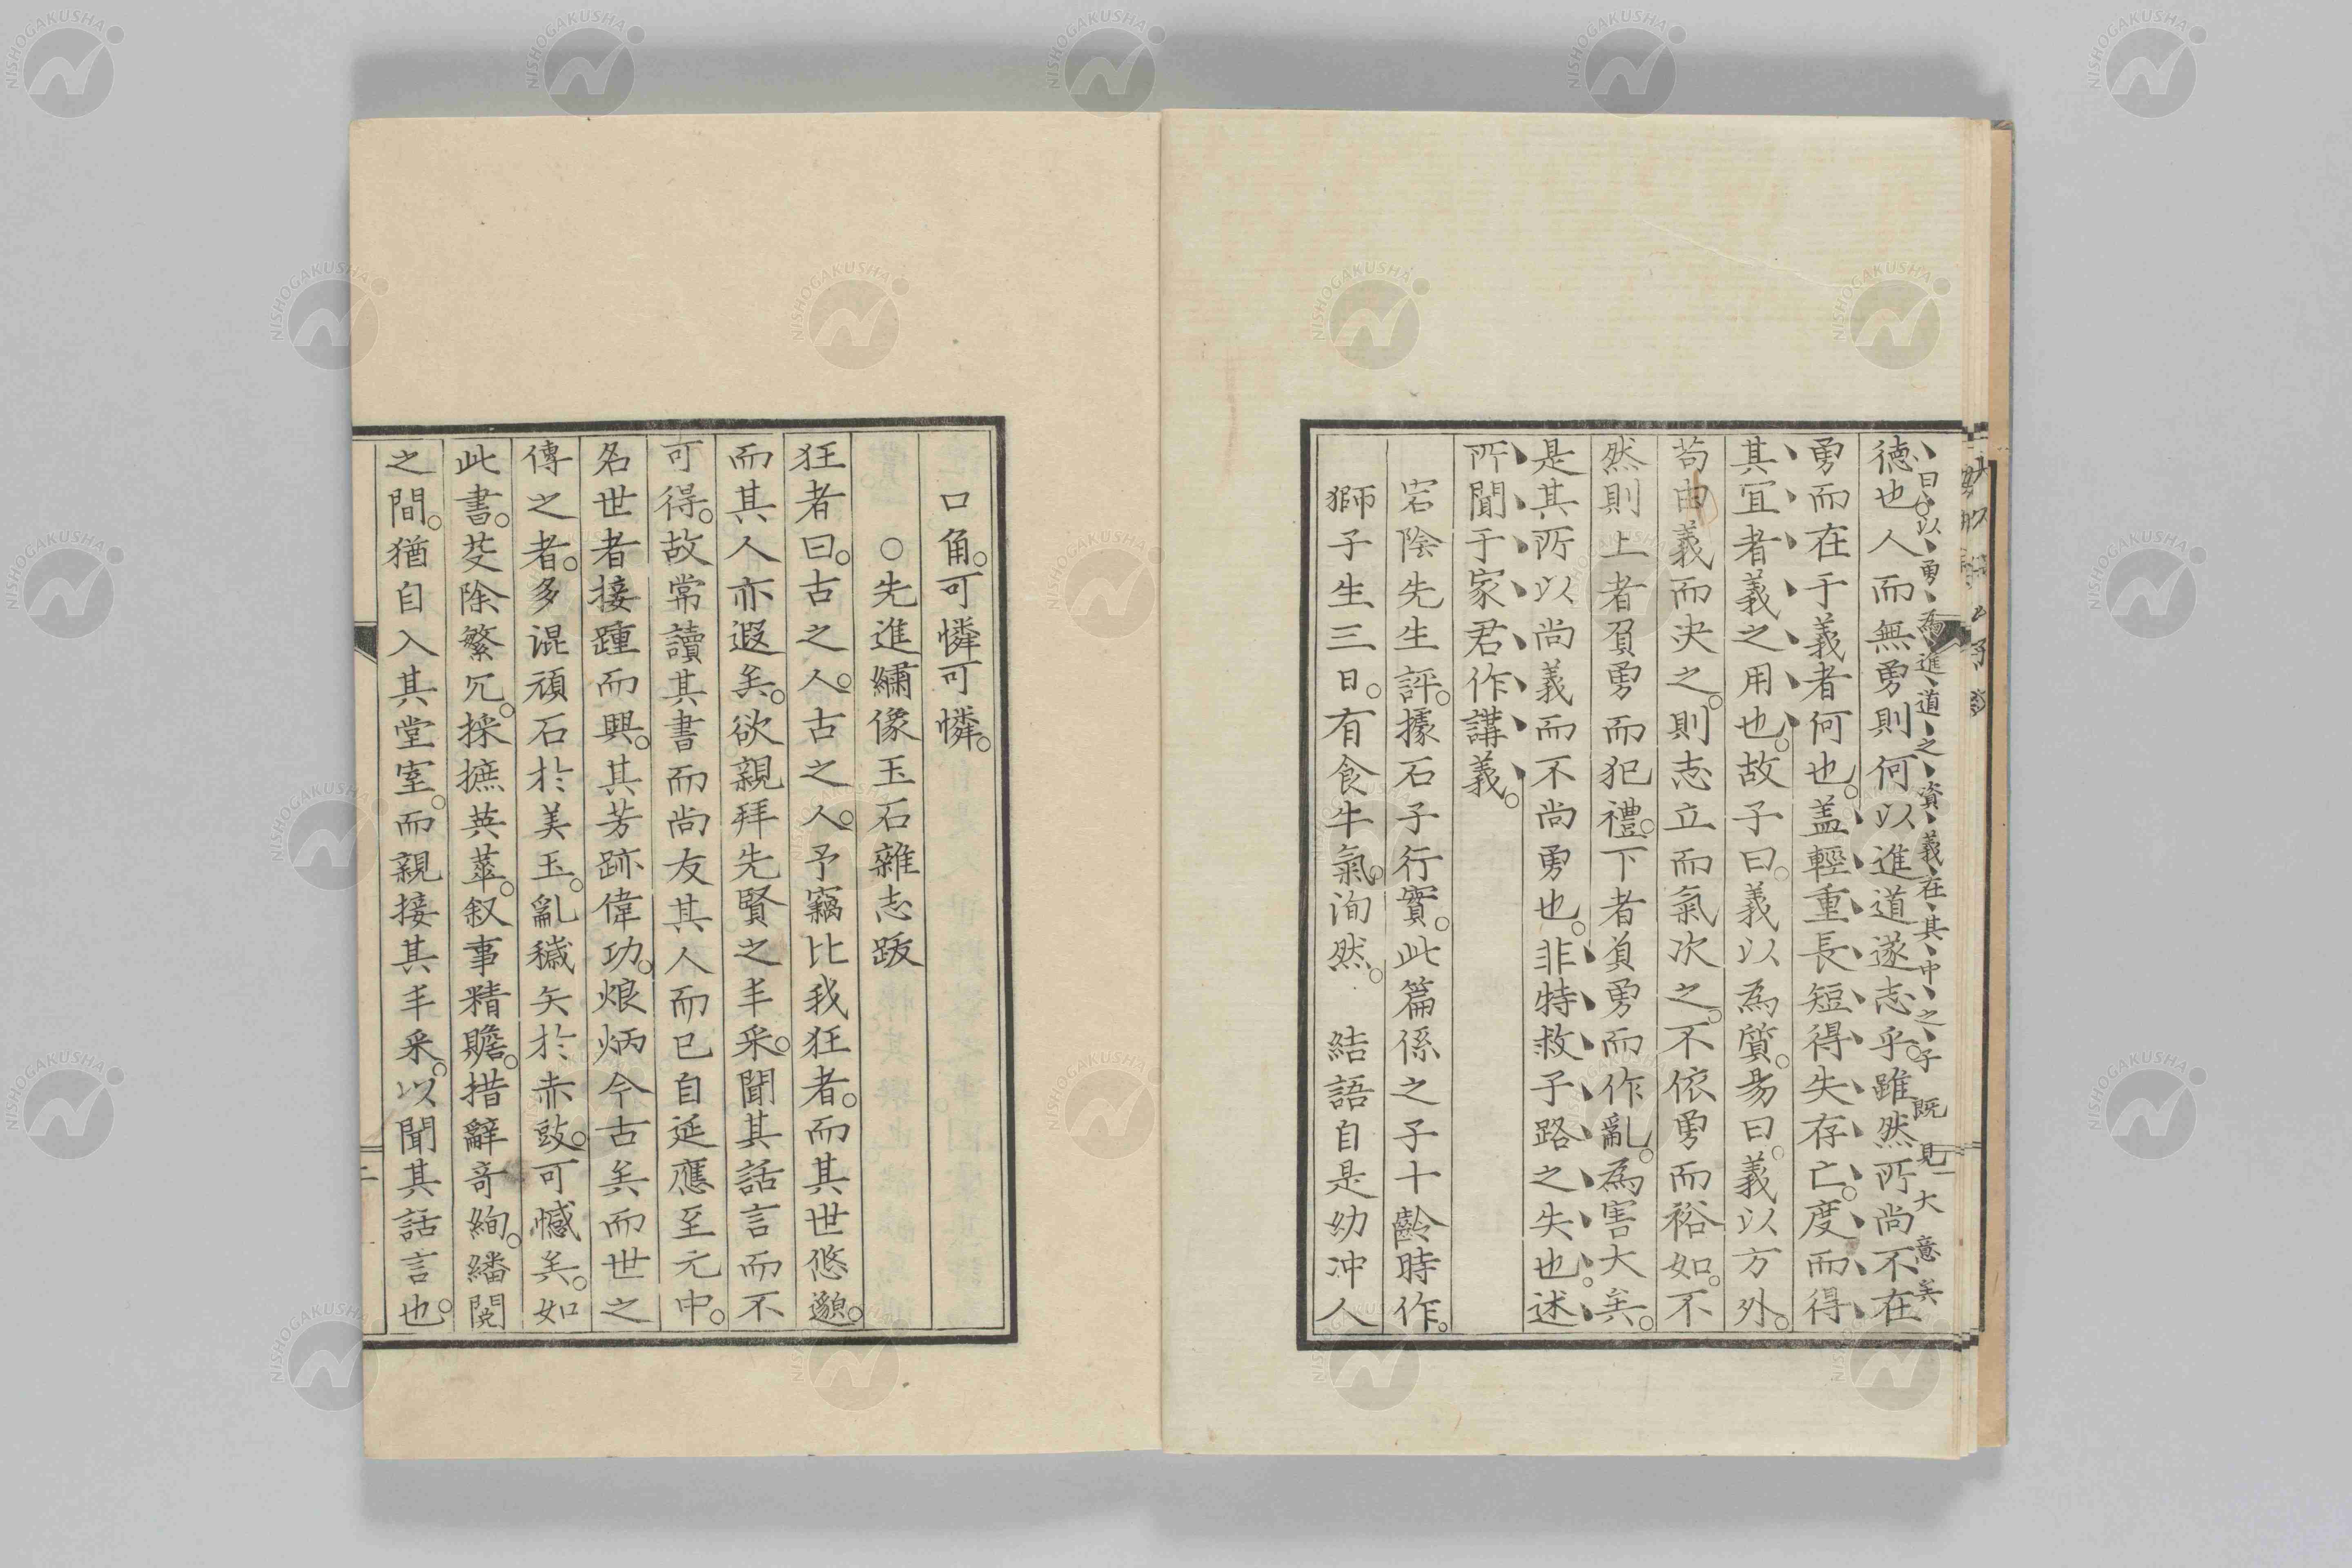 德也人而無勇則何以進道遂志乎雖然所尚不在
曰以勇為進道之資義在其中之子既見大意矣
勇而在于義者何也盖輕重長短得失存亡度而得
其宜者義之用也故子曰義以為質易曰義以方外
苟由義而決之則志立而氣次之不依勇而裕如不
然則上者負勇而犯禮下者負勇而作亂為害大矣
是其所以尚義而不尚勇也非特救子路之失也述
所聞于家君作講義
宕陰先生評據石子行實此篇係之子十齡時作
獅子生三日有食牛氣洵然　結語自是幼冲人
口角可憐可憐
○先進繡像玉石雜志跋
狂者曰古之人古之人予竊比我狂者而其世悠邈
而其人亦遐矣欲親拜先賢之丰采聞其話言而不
可得故常讀其書而尚友其人而已自延應至元中
名世者接踵而興其芳跡偉功烺炳今古矣而世之
傳之者多混頑石於美玉亂穢矢於赤豉可憾矣如
此書芟除繁冗採摭英華叙事精贍措辭奇絢繙閱
之間猶自入其堂室而親接其丰采以聞其話言也
NISHOGAKUSHA